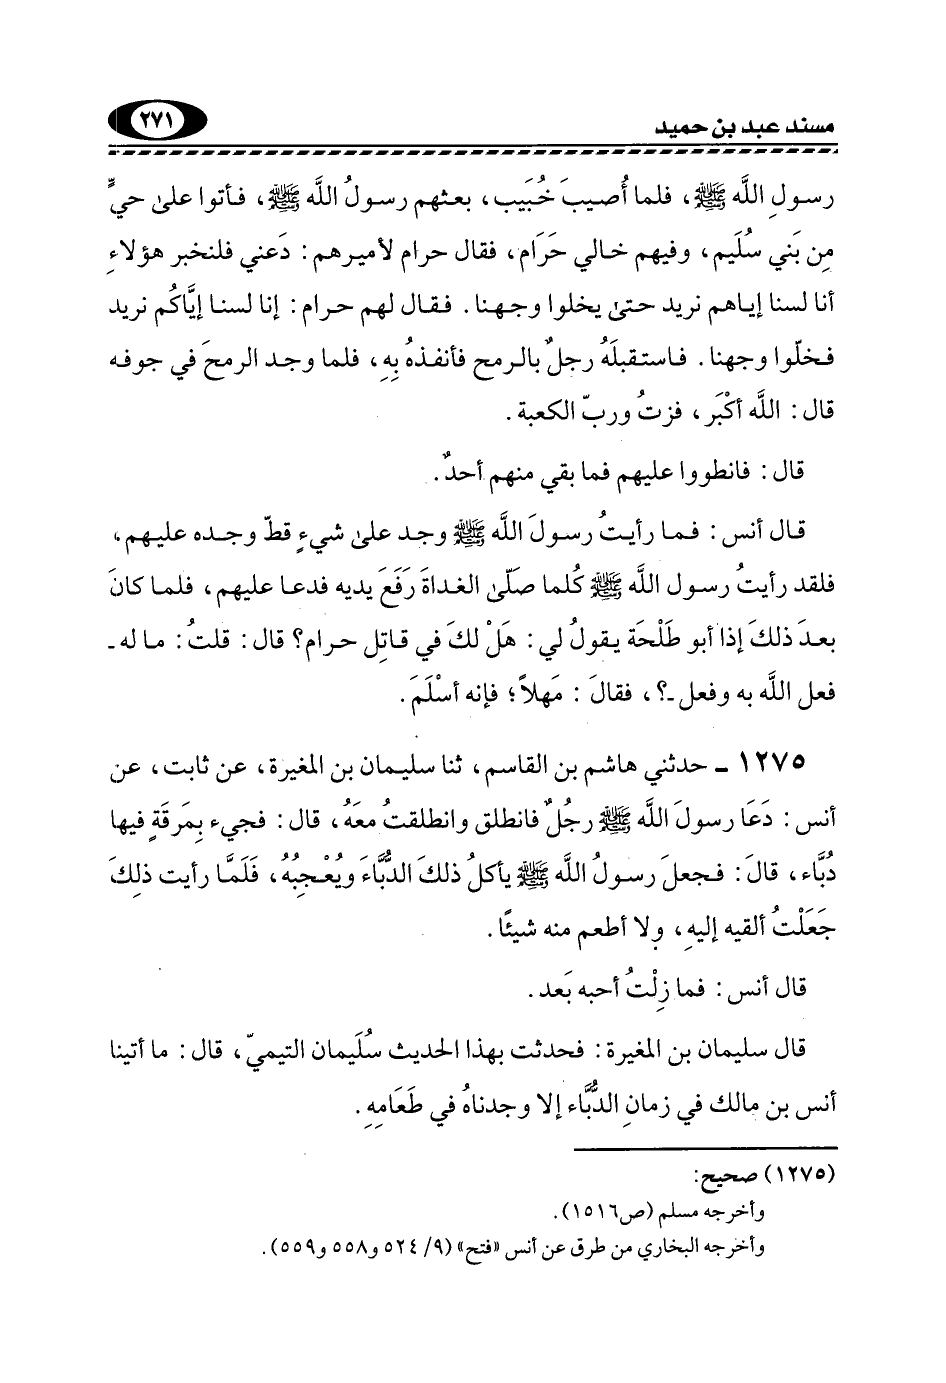 مسند عبد بن حميد
٢٧١
رسولِ اللَّه ﷺ، فلما أُصيبَ خُبَيب، بعثهم رسولُ اللَّه ﷺ، فأتوا على حيٍّ
مِن بَني سُلَيم، وفيهم خالي حَرَام، فقال حرام لأميرهم: دَعني فلنخبر هؤلاءِ
أنا لسنا إياهم نريد حتى يخلوا وجهنا. فقال لهم حرام: إنا لسنا إيَّاكُم نريد
فخلّوا وجهنا. فاستقبلَهُ رجلٌ بالرمح فأنفذهُ بِهِ، فلما وجد الرمحَ في جوفه
قال: اللَّه أكْبَر، فزتُ وربّ الكعبة.
قال: فانطووا عليهم فما بقي منهم أحدٌ.
قال أنس: فما رأيتُ رسولَ اللَّه ﷺ وجد على شيءٍ قطّ وجده عليهم،
فلقد رأيتُ رسول اللَّه ﷺ كُلما صلّى الغداةَ رَفَعَ يديه فدعا عليهم، فلما كانَ
بعدَ ذلكَ إذا أبو طَلْحَة يقولُ لي: هَلْ لكَ في قاتِل حرام؟ قال: قلتُ: ما له ـ
فعل اللَّه به وفعل ـ؟، فقالَ: مَهلاً؛ فإنه أسْلَمَ.
١٢٧٥ ـ حدثني هاشم بن القاسم، ثنا سليمان بن المغيرة، عن ثابت، عن
أنس: دَعَا رسولَ اللَّه ﷺ رجُلٌ فانطلق وانطلقتُ معَهُ، قال: فجيء بِمَرقَةٍ فيها
دُبَّاء، قالَ: فجعلَ رسولُ اللَّه ﷺ يأكلُ ذلكَ الدُّبَّاءَ ويُعْجِبُهُ، فَلَمَّا رأيت ذلِكَ
جَعَلْتُ ألقيه إليهِ، ولا أطعم منه شيئًا.
قال أنس: فما زِلْتُ أحبه بَعد.
قال سليمان بن المغيرة: فحدثت بهذا الحديث سُلَيمان التيميّ، قال: ما أتينا
أنس بن مالك في زمانِ الدُّبَّاء إلا وجدناهُ في طَعَامِهِ.
(١٢٧٥) صحيح:
وأخرجه مسلم (ص١٥١٦).
وأخرجه البخاري من طرق عن أنس «فتح» (٩/ ٥٢٤ و٥٥٨ و٥٥٩).